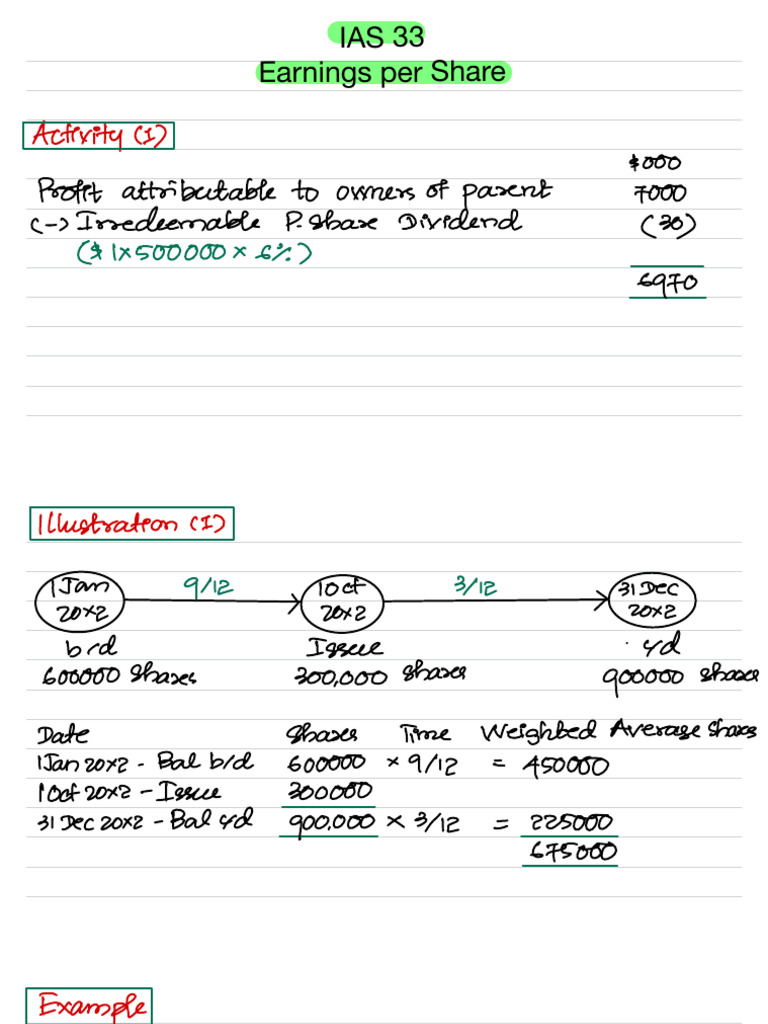 IAS 33
Earnings per Share
Activity (I)
$000
Profit attributable to owners of parent 7000
(-) Irredeemable P. Share Dividend (30)
($1×500000×6%)
6970
Illustration (I)
1 Jan 20×2 9/12 1 Oct 20×2 3/12 31 Dec 20×2
b/d Issue c/d
600000 Shares 300,000 Shares 900000 Shares
Date Shares Time Weighted Average Shares
1 Jan 20×2 - Bal b/d 600000 × 9/12 = 450000
1 Oct 20×2 - Issue 300000
31 Dec 20×2 - Bal c/d 900,000 × 3/12 = 225000
675000
Example